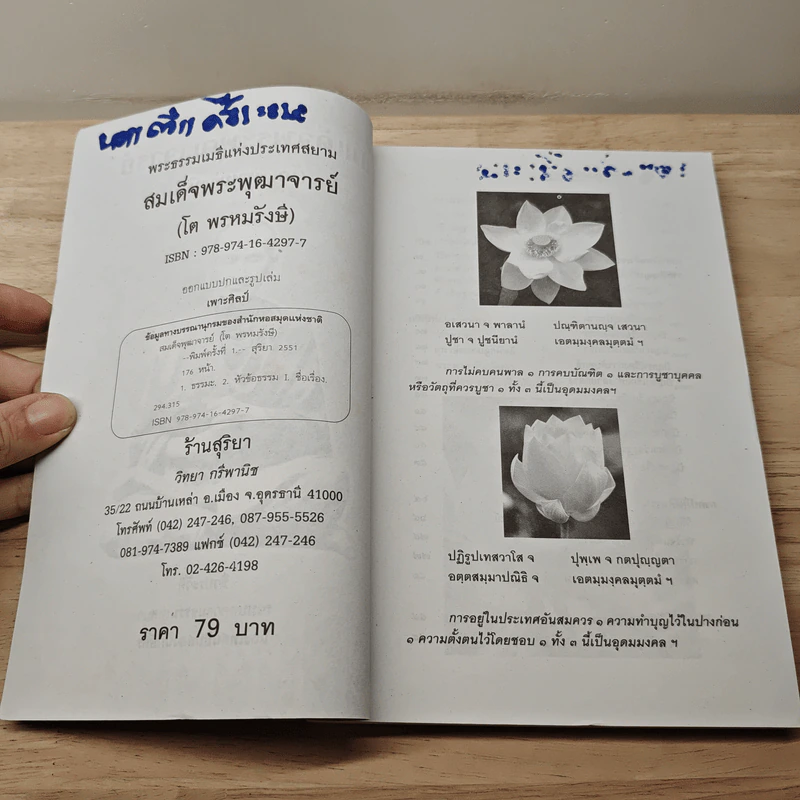 พระธรรมเมธีแห่งประเทศสยาม
สมเด็จพระพุฒาจารย์
(โต พรหมรังษี)
ISBN : 978-974-16-4297-7
ออกแบบปกและรูปเล่ม
เพาะศิลป์
ข้อมูลทางบรรณานุกรมของสำนักหอสมุดแห่งชาติ
สมเด็จพุฒาจารย์ (โต พรหมรังษี)
--พิมพ์ครั้งที่ 1.-- สุริยา 2551
176 หน้า.
1. ธรรมะ. 2. หัวข้อธรรม I. ชื่อเรื่อง.
294.315
ISBN 978-974-16-4297-7
ร้านสุริยา
วิทยา กรีพานิช
35/22 ถนนบ้านเหล่า อ.เมือง จ.อุดรธานี 41000
โทรศัพท์ (042) 247-246, 087-955-5526
081-974-7389 แฟกซ์ (042) 247-246
โทร. 02-426-4198
ราคา 79 บาท
อเสวนา จ พาลานํ ปณฺฑิตานญฺจ เสวนา
ปูชา จ ปูชนียานํ เอตมฺมงฺคลมุตฺตมํ ฯ
การไม่คบคนพาล ๑ การคบบัณฑิต ๑ และการบูชาบุคคล
หรือวัตถุที่ควรบูชา ๑ ทั้ง ๓ นี้เป็นอุดมมงคลฯ
ปฏิรูปเทสวาโส จ ปุพฺเพ จ กตปุญฺญตา
อตฺตสมฺมาปณิธิ จ เอตมฺมงฺคลมุตฺตมํ ฯ
การอยู่ในประเทศอันสมควร ๑ ความทำบุญไว้ในปางก่อน
๑ ความตั้งตนไว้โดยชอบ ๑ ทั้ง ๓ นี้เป็นอุดมมงคล ฯ